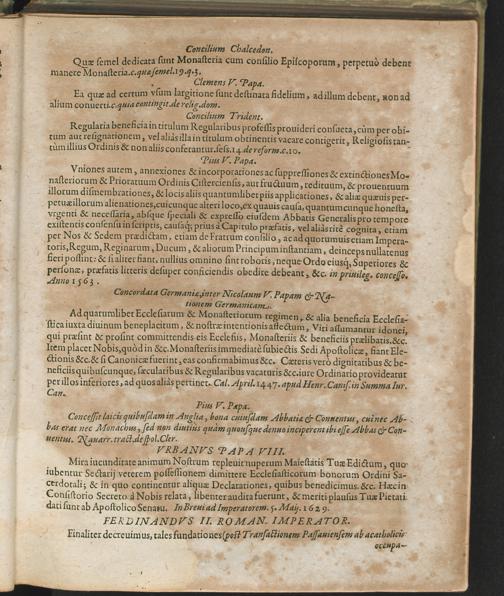 Concilium Chalcedon.
Quæ semel dedicata sunt Monasteria cum consilio Episcoporum, perpetuò debent
manere Monasteria.c.quæ semel.19.q.3.
Clemens V. Papa.
Ea quæ ad certum vsum largitione sunt destinata fidelium, ad illum debent, non ad
alium conuerti.c.quia contingit.de relig.dom.
Concilium Trident.
Regularia beneficia in titulum Regularibus professis prouideri consueta, cùm per obi-
tum aut resignationem, vel aliàs illa in titulum obtinentis vacare contigerit, Religiosis tan-
tùm illius Ordinis & non aliis conferantur.sess.14 de reform.c.10.
Pius V. Papa.
Vniones autem, annexiones & incorporationes ac suppressiones & extinctiones Mo-
nasteriorum & Prioratuum Ordinis Cisterciensis, aut fructuum, redituum, & prouentuum
illorum dismembrationes, & locis aliis quantumlibet piis applicationes, & aliæ quæuis per-
petuæ illorum alienationes, cuicunque alteri loco, ex quauis causa, quantumcunque honesta,
vrgenti & necessaria, absque speciali & expresso eiusdem Abbatis Generalis pro tempore
existentis consensu in scriptis, causaq; prius à Capitulo præfatis, vel aliàs ritè cognita, etiam
per Nos & Sedem prædictam, etiam de Fratrum consilio, ac ad quorumuis etiam Impera-
toris, Regum, Reginarum, Ducum, & aliorum Principum instantiam, deinceps nullatenus
fieri possint: & si aliter fiant, nullius omnino sint roboris, neque Ordo eiusq; Superiores &
personæ, præfatis litteris desuper conficiendis obedire debeant, &c. in priuileg. concesso.
Anno 1563.
Concordata Germaniæ, inter Nicolaum V. Papam & Na-
tionem Germanicam.
Ad quarumlibet Ecclesiarum & Monasteriorum regimen, & alia beneficia Ecclesia-
stica iuxta diuinum beneplacitum, & nostræ intentionis affectum, Viri assumantur idonei,
qui præsint & prosint committendis eis Ecclesiis, Monasteriis & beneficiis prælibatis.&c.
Item placet Nobis, quòd in &c. Monasteriis immediatè subiectis Sedi Apostolicæ, fiant Ele-
ctiones &c. & si Canonicæ fuerint, eas confirmabimus &c. Cæteris verò dignitatibus & be-
neficiis quibuscunque, sæcularibus & Regularibus vacaturis &c. iure Ordinario prouideatur
per illos inferiores, ad quos aliàs pertinet. Cal. April. 1447. apud Henr. Canis. in Summa Iur.
Can.
Pius V. Papa.
Concessit laicis quibusdam in Anglia, bona cuiusdam Abbatiæ & Conuentus, cui nec Ab-
bas erat nec Monachus, sed non diutius quàm quousque denuo inciperent ibi esse Abbas & Con-
uentus. Nauarr. tract. de spol. Cler.
VRBANVS PAPA VIII.
Mira iucunditate animum Nostrum repleuit nuperum Maiestatis Tuæ Edictum, quo
iubentur Sectarij veterem possessionem dimittere Ecclesiasticorum bonorum Ordini Sa-
cerdotali; & in quo continentur aliquæ Declarationes, quibus benedicimus. &c. Hæc in
Consistorio Secreto à Nobis relata, libenter audita fuerunt, & meriti plausus Tuæ Pietati
dati sunt ab Apostolico Senatu. In Breui ad Imperatorem. 5. Maij. 1629.
FERDINANDVS II. ROMAN. IMPERATOR.
Finaliter decreuimus, tales fundationes (post Transactionem Passauiensem ab acatholicis
occupa-